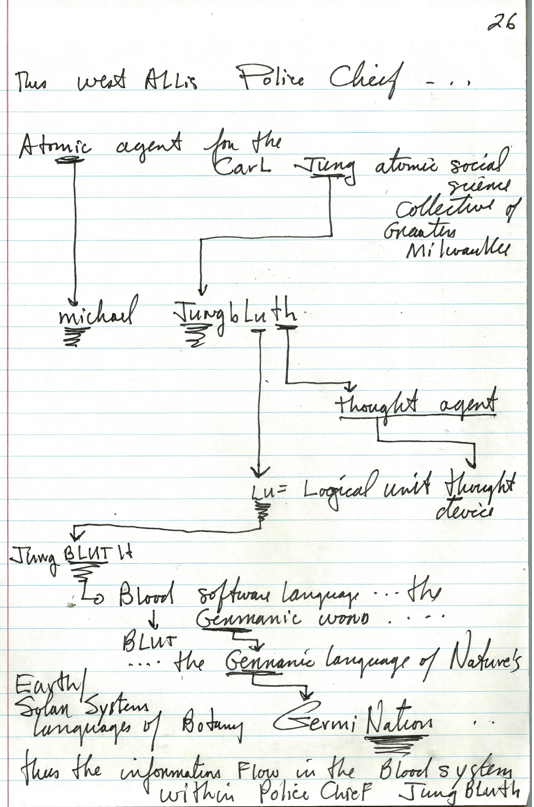 26
This west ALLis Police Chief - ...
Atomic agent for the
CarL Jung atomic social
science
Collective of
Greater
Milwaukee
michael JungbLuth
thought agent
Lu = Logical unit thought
device
Jung BLUT H
Blood software language ... the
Germanic word .....
BLUT
.... the Germanic language of Nature's
Earth/
Solar System
languages of Botany GermiNation ..
thus the information Flow in the Blood system
within Police Chief JungBluth